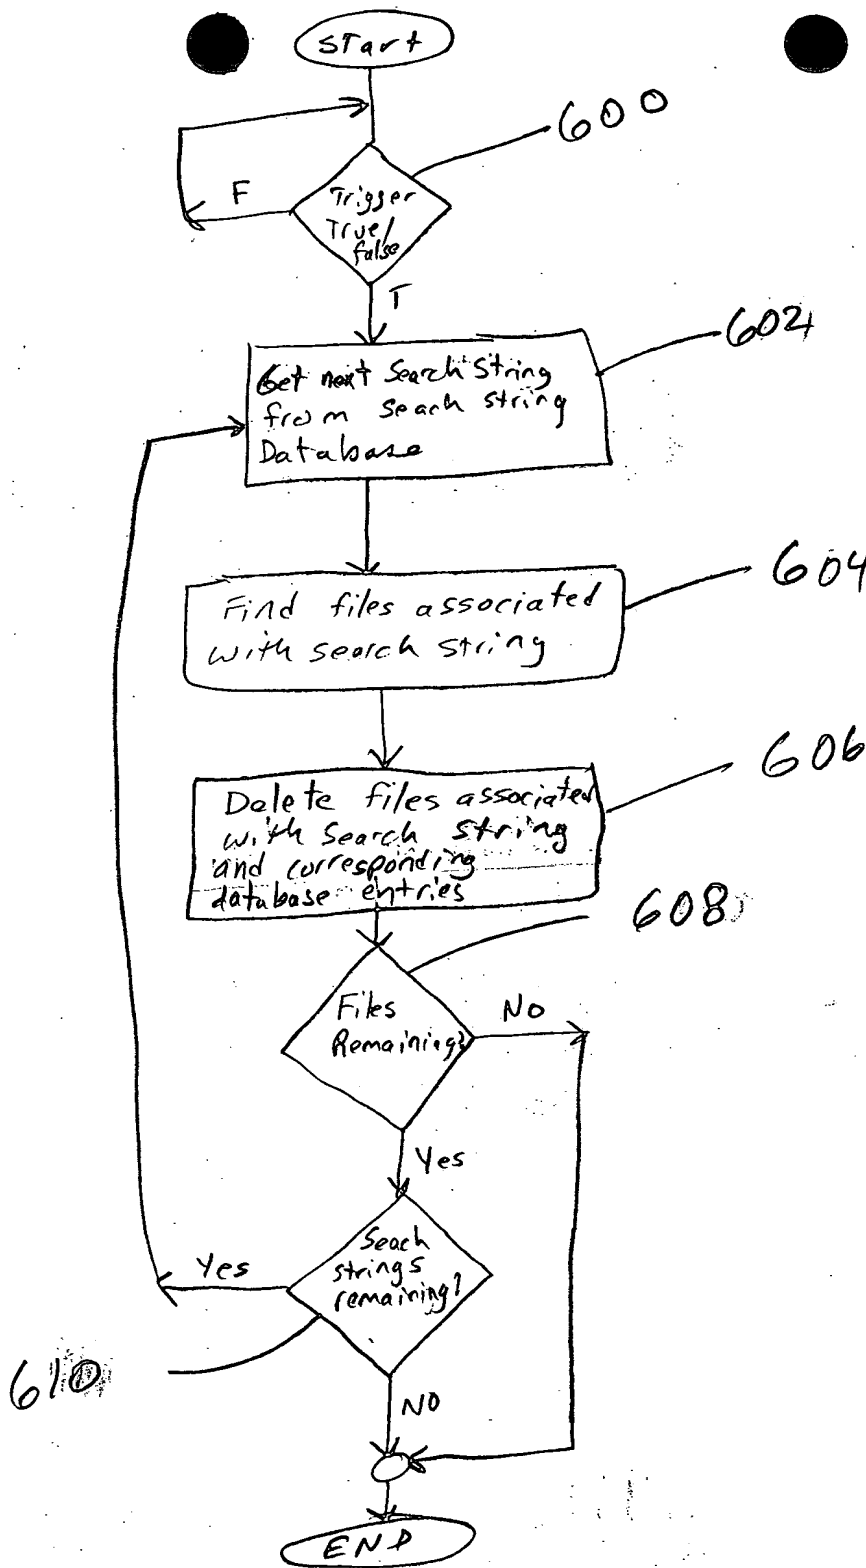 START
600
F
Trigger
True/
false
T
602
Get next Search String
from Seach string
Database
604
Find files associated
with search string
606
Delete files associated
with search string
and corresponding
database entries
608
Files
Remaining?
No
Yes
Seach
strings
remaining?
Yes
610
NO
END